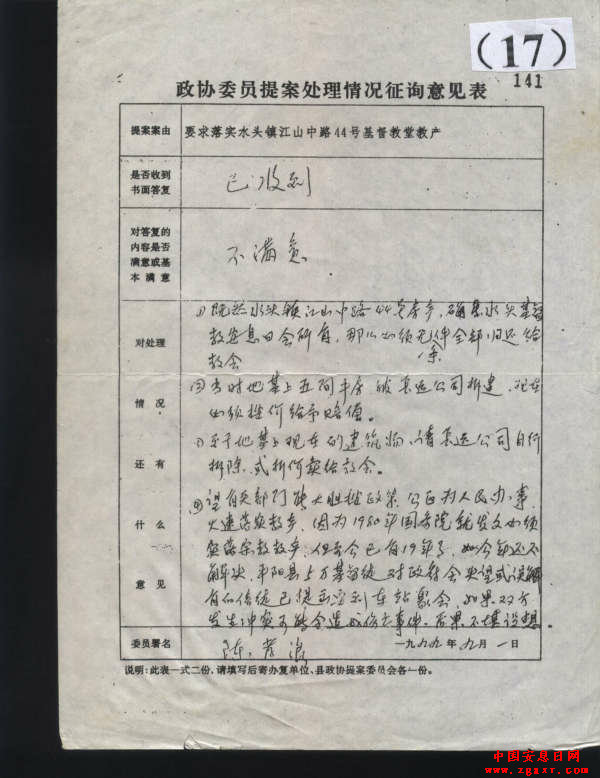 (17)
141
政协委员提案处理情况征询意见表
提案案由
要求落实水头镇江山中路44号基督教堂教产
是否收到
书面答复
已收到
对答复的
内容是否
满意或基
本满意
不满意
对处理
情况
还有
什么
意见
①既然水头镇江山中路44号房产,确系水头基督
教安息日会所有,那么必须无条件全部归还给
教会
②当时地基上五间平房被集运公司拆建,现在
必须按价给予赔偿。
③至于地基上现在的建筑物,请集运公司自行
拆除,或折价卖给教会。
④望有关部门能大胆按政策,公正为人民办事,
火速落实教产,因为1980年国务院就发文必须
落实宗教教产,但至今已有19年了,如今却还不
解决,平阳县上万基督徒对政府会失望或误解
有的信徒已提出要到车站聚会,如果双方
发生冲突可能会造成伤亡事件,后果不堪设想。
委员署名
陈孝
一九九九年九月一日
说明:此表一式二份,请填写后寄办复单位、县政协提案委员会各一份。
中国安息日网
www.zgaxr.com